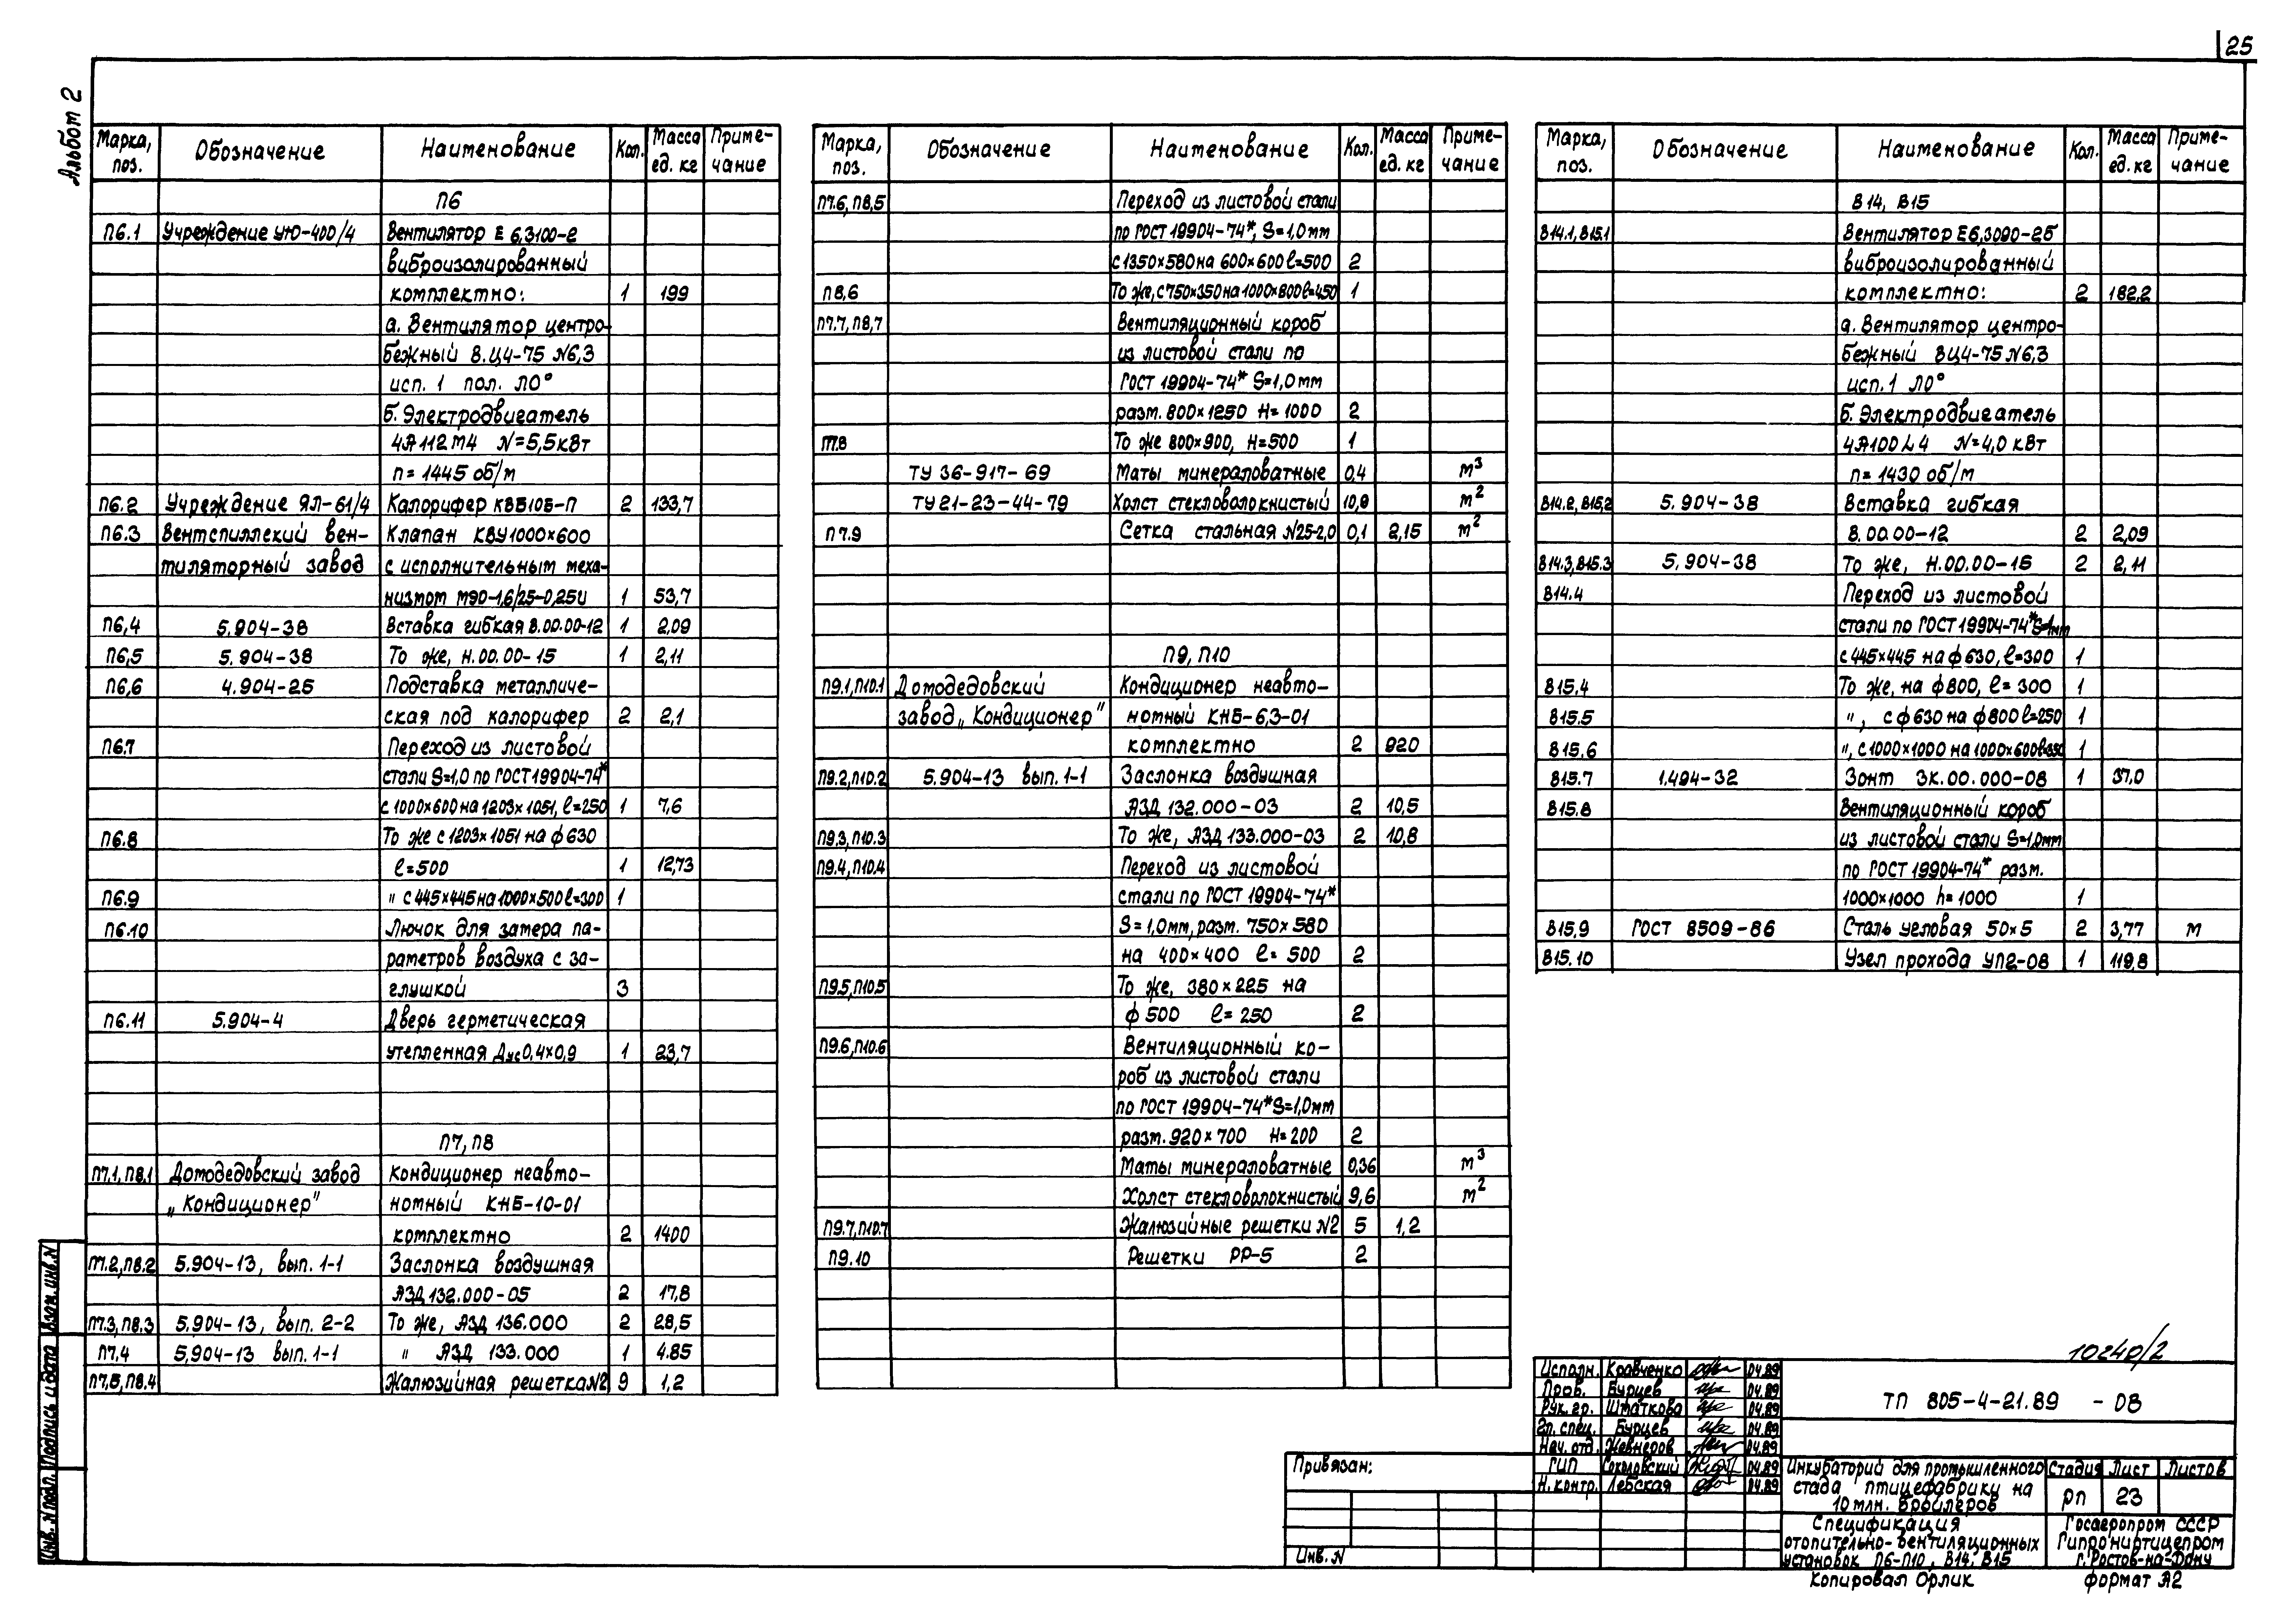 25
Альбом 2
Марка, поз. Обозначение Наименование Кол. Масса ед. кг Примечание
П6
П6.1 Учреждение УЮ-400/4 Вентилятор Е 6,3100-2
виброизолированный
комплектно: 1 199
а. Вентилятор центро-
бежный В.Ц4-75 N6,3
исп. 1 пол. Л0°
б. Электродвигатель
4А112М4 N=5,5кВт
n=1445 об/м
П6.2 Учреждение ЯЛ-61/4 Калорифер КВБ10Б-П 2 133,7
П6.3 Вентспилский вен- Клапан КВУ1000×600
тиляторный завод с исполнительным меха-
низмом МЭО-1,6/25-0,25И 1 53,7
П6,4 5.904-38 Вставка гибкая В.00.00-12 1 2,09
П6,5 5.904-38 То же, Н.00.00-15 1 2,11
П6,6 4.904-25 Подставка металличе-
ская под калорифер 2 2,1
П6.7 Переход из листовой
стали S=1,0 по ГОСТ19904-74*
с 1000×600 на 1203×1051, ℓ=250 1 7,6
П6.8 То же с 1203×1051 на ф 630
ℓ=500 1 12,73
П6.9 " с 445×445 на 1000×500 ℓ=300 1
П6.10 Лючок для замера па-
раметров воздуха с за-
глушкой 3
П6.11 5.904-4 Дверь герметическая
утепленная Дус0,4×0,9 1 23,7
П7, П8
П7.1, П8.1 Домодедовский завод Кондиционер неавто-
„Кондиционер" номный КНБ-10-01
комплектно 2 1400
П7.2, П8.2 5.904-13, вып. 1-1 Заслонка воздушная
АЗД 132.000-05 2 17,8
П7.3, П8.3 5.904-13, вып. 2-2 То же, АЗД 136.000 2 28,5
П7.4 5.904-13 вып. 1-1 " АЗД 133.000 1 4.85
П7,5, П8.4 Жалюзийная решетка N2 9 1,2
Марка, поз. Обозначение Наименование Кол. Масса ед. кг Примечание
П7.6, П8,5 Переход из листовой стали
по ГОСТ 19904-74*, S=1,0мм
с 1350×580 на 600×600 ℓ=500 2
П8,6 То же, с 750×350 на 1000×800 ℓ=450 1
П7.7, П8,7 Вентиляционный короб
из листовой стали по
ГОСТ 19904-74* S=1,0мм
разм. 800×1250 Н=1000 2
П7.8 То же 800×900, Н=500 1
ТУ 36-917-69 Маты минераловатные 0,4 м3
ТУ21-23-44-79 Холст стекловолокнистый м2
П7.9 Сетка стальная N25-2,0 0,1 2,15 м2
П9, П10
П9.1, П10.1 Домодедовский Кондиционер неавто-
завод „Кондиционер" номный КНБ-6,3-01
комплектно 2 920
П9.2, П10.2 5.904-13 вып. 1-1 Заслонка воздушная
АЗД 132.000-03 2 10,5
П9.3, П10.3 То же, АЗД 133.000-03 2 10,8
П9.4, П10.4 Переход из листовой
стали по ГОСТ 19904-74*
S=1,0мм, разм. 750×580
на 400×400 ℓ=500 2
П9.5, П10.5 То же, 380×225 на
ф 500 ℓ=250 2
П9.6, П10.6 Вентиляционный ко-
роб из листовой стали
по ГОСТ 19904-74* S=1,0мм
разм. 920×700 Н=200 2
Маты минераловатные 0,36 м3
Холст стекловолокнистый 9,6 м2
П9.7, П10.7 Жалюзийные решетки N2 5 1,2
П9.10 Решетки РР-5 2
Марка, поз. Обозначение Наименование Кол. Масса ед. кг Примечание
В14, В15
В14.1, В15.1 Вентилятор Е6,3090-2б
виброизолированный
комплектно: 2 182,2
а. Вентилятор центро-
бежный ВЦ4-75 N6,3
исп. 1 Л0°
б. Электродвигатель
4А100L4 N=4,0 кВт
n=1430 об/м
В14.2, В15,2 5.904-38 Вставка гибкая
В.00.00-12 2 2,09
В14.3, В15.3 5.904-38 То же, Н.00.00-15 2 2,11
В14.4 Переход из листовой
стали по ГОСТ 19904-74* S=1мм
с 445×445 на ф 630, ℓ=300 1
В15.4 То же, на ф800, ℓ=300 1
В15.5 ", с ф 630 на ф 800 ℓ=250 1
В15.6 ", с 1000×1000 на 1000×600 1
В15.7 1.494-32 Зонт ЗК.00.000-08 1 37,0
В15.8 Вентиляционный короб
из листовой стали S=1,0мм
по ГОСТ 19904-74* разм.
1000×1000 h=1000 1
В15.9 ГОСТ 8509-86 Сталь угловая 50×5 2 3,77 м
В15.10 Узел прохода УП2-08 1 119,8
10240/2
Исполн. Кравченко 04.89
Пров. Бурцев 04.89
Рук. гр. Шматкова 04.89
Гл. спец. Бурцев 04.89
Нач. отд. Жевнеров 04.89
ГИП Соколовский 04.89
Н. контр. Лебская 04.89
ТП 805-4-21.89 - ОВ
Инкубаторий для промышленного
стада птицефабрику на
10 млн. бройлеров
Стадия Лист Листов
РП 23
Спецификация
отопительно-вентиляционных
установок П6-П10, В14, В15
Госагропром СССР
Гипрониптицепром
г. Ростов-на-Дону
Привязан:
Инв. N
Копировал Орлик Формат А2
Взам. инв. N
Подпись и дата
Инв. N подл.